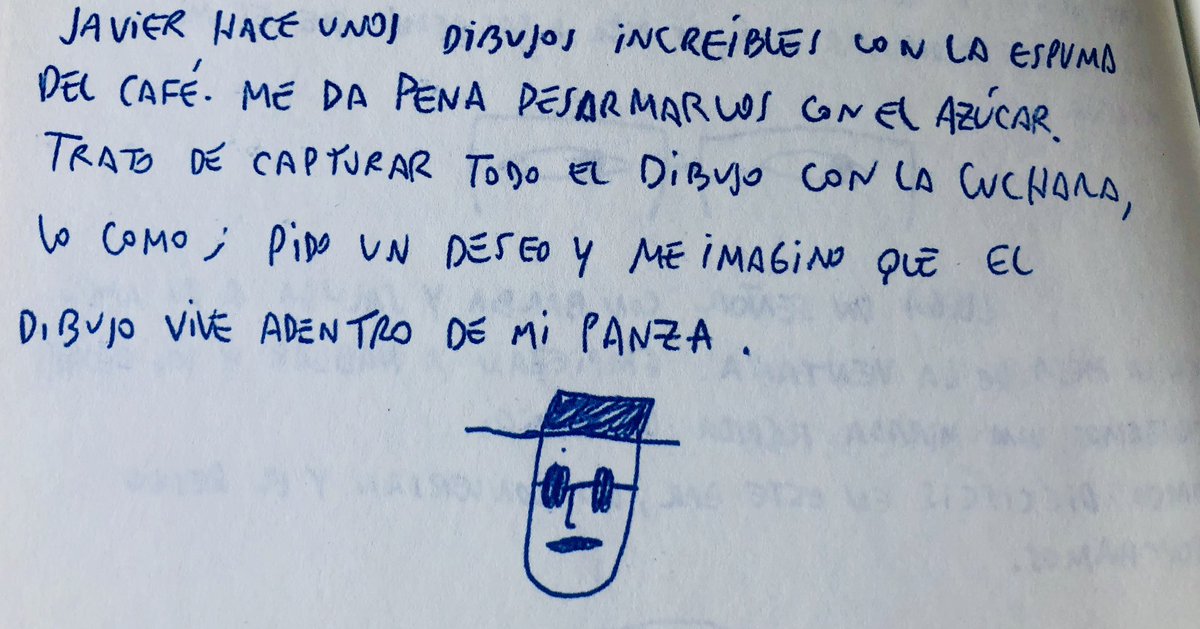 JAVIER HACE UNOS DIBUJOS INCREÍBLES CON LA ESPUMA
DEL CAFÉ. ME DA PENA DESARMARLOS CON EL AZÚCAR.
TRATO DE CAPTURAR TODO EL DIBUJO CON LA CUCHARA,
LO COMO; PIDO UN DESEO Y ME IMAGINO QUE EL
DIBUJO VIVE ADENTRO DE MI PANZA.